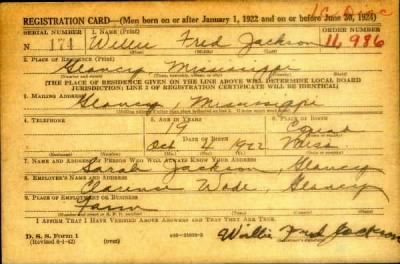 REGISTRATION CARD—(Men born on or after January 1, 1922 and on or before June 30, 1924)
SERIAL NUMBER 1. NAME (Print) ORDER NUMBER
N 174 Willie Fred Jackson 11,986
(First) (Middle) (Last)
2. PLACE OF RESIDENCE (Print)
Glancy, Mississippi
(THE PLACE OF RESIDENCE GIVEN ON THE LINE ABOVE WILL DETERMINE LOCAL BOARD
JURISDICTION; LINE 2 OF REGISTRATION CERTIFICATE WILL BE IDENTICAL)
3. MAILING ADDRESS
Glancy, Mississippi
4. TELEPHONE 5. AGE IN YEARS 6. PLACE OF BIRTH
19
DATE OF BIRTH
Oct 4 1922 Miss
7. NAME AND ADDRESS OF PERSON WHO WILL ALWAYS KNOW YOUR ADDRESS
Sarah Jackson, Glancy
8. EMPLOYER'S NAME AND ADDRESS
Clarence Wade, Glancy
9. PLACE OF EMPLOYMENT OR BUSINESS
Farm
I AFFIRM THAT I HAVE VERIFIED ABOVE ANSWERS AND THAT THEY ARE TRUE.
D. S. S. Form 1
(Revised 6-1-42) (over) Willie Fred Jackson